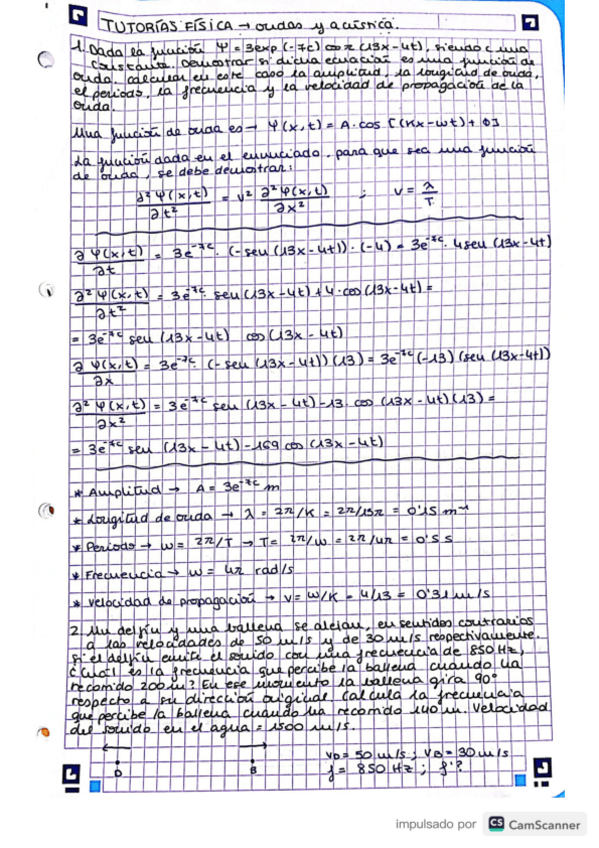 TUTORÍAS FÍSICA → ondas y acústica.
1. Dada la función Ψ = 3exp(-7c) cos π(13x-4t), siendo c una
constante. Demostrar si dicha ecuación es una función de
onda. calcular en este caso la amplitud, la longitud de onda,
el periodo, la frecuencia y la velocidad de propagación de la
onda.
Una función de onda es → Ψ(x,t) = A·cos [(Kx-wt) + Φ]
La función dada en el enunciado, para que sea una función
de onda, se debe demostrar:
∂²Ψ(x,t)/∂t² = v² ∂²Ψ(x,t)/∂x² ; v = λ/T
∂Ψ(x,t)/∂t = 3e⁻⁷ᶜ · (-sen(13x-4t))·(-4) = 3e⁻⁷ᶜ · 4sen(13x-4t)
∂²Ψ(x,t)/∂t² = 3e⁻⁷ᶜ · sen(13x-4t)+4·cos(13x-4t) =
= 3e⁻⁷ᶜ sen(13x-4t) cos(13x-4t)
∂Ψ(x,t)/∂x = 3e⁻⁷ᶜ · (-sen(13x-4t))(13) = 3e⁻⁷ᶜ(-13)(sen(13x-4t))
∂²Ψ(x,t)/∂x² = 3e⁻⁷ᶜ sen(13x-4t)-13·cos(13x-4t)(13) =
= 3e⁻⁷ᶜ sen(13x-4t)-169 cos(13x-4t)
* Amplitud → A = 3e⁻⁷ᶜ m
* Longitud de onda → λ = 2π/K = 2π/13π = 0'15 m⁻¹
* Periodo → w = 2π/T → T = 2π/w = 2π/4π = 0'5 s
* Frecuencia → w = 4π rad/s
* Velocidad de propagación → v = w/K = 4/13 = 0'31 m/s
2. Un delfín y una ballena se alejan, en sentidos contrarios
a las velocidades de 50 m/s y de 30 m/s respectivamente.
Si el delfín emite el sonido con una frecuencia de 850 Hz,
¿cuál es la frecuencia que percibe la ballena cuando ha
recorrido 200 m? En ese momento la ballena gira 90°
respecto a su dirección original. Calcula la frecuencia
que percibe la ballena cuando ha recorrido 140 m. Velocidad
del sonido en el agua = 1500 m/s.
D B
vD = 50 m/s ; vB = 30 m/s
f = 850 Hz ; f'?
impulsado por CS CamScanner